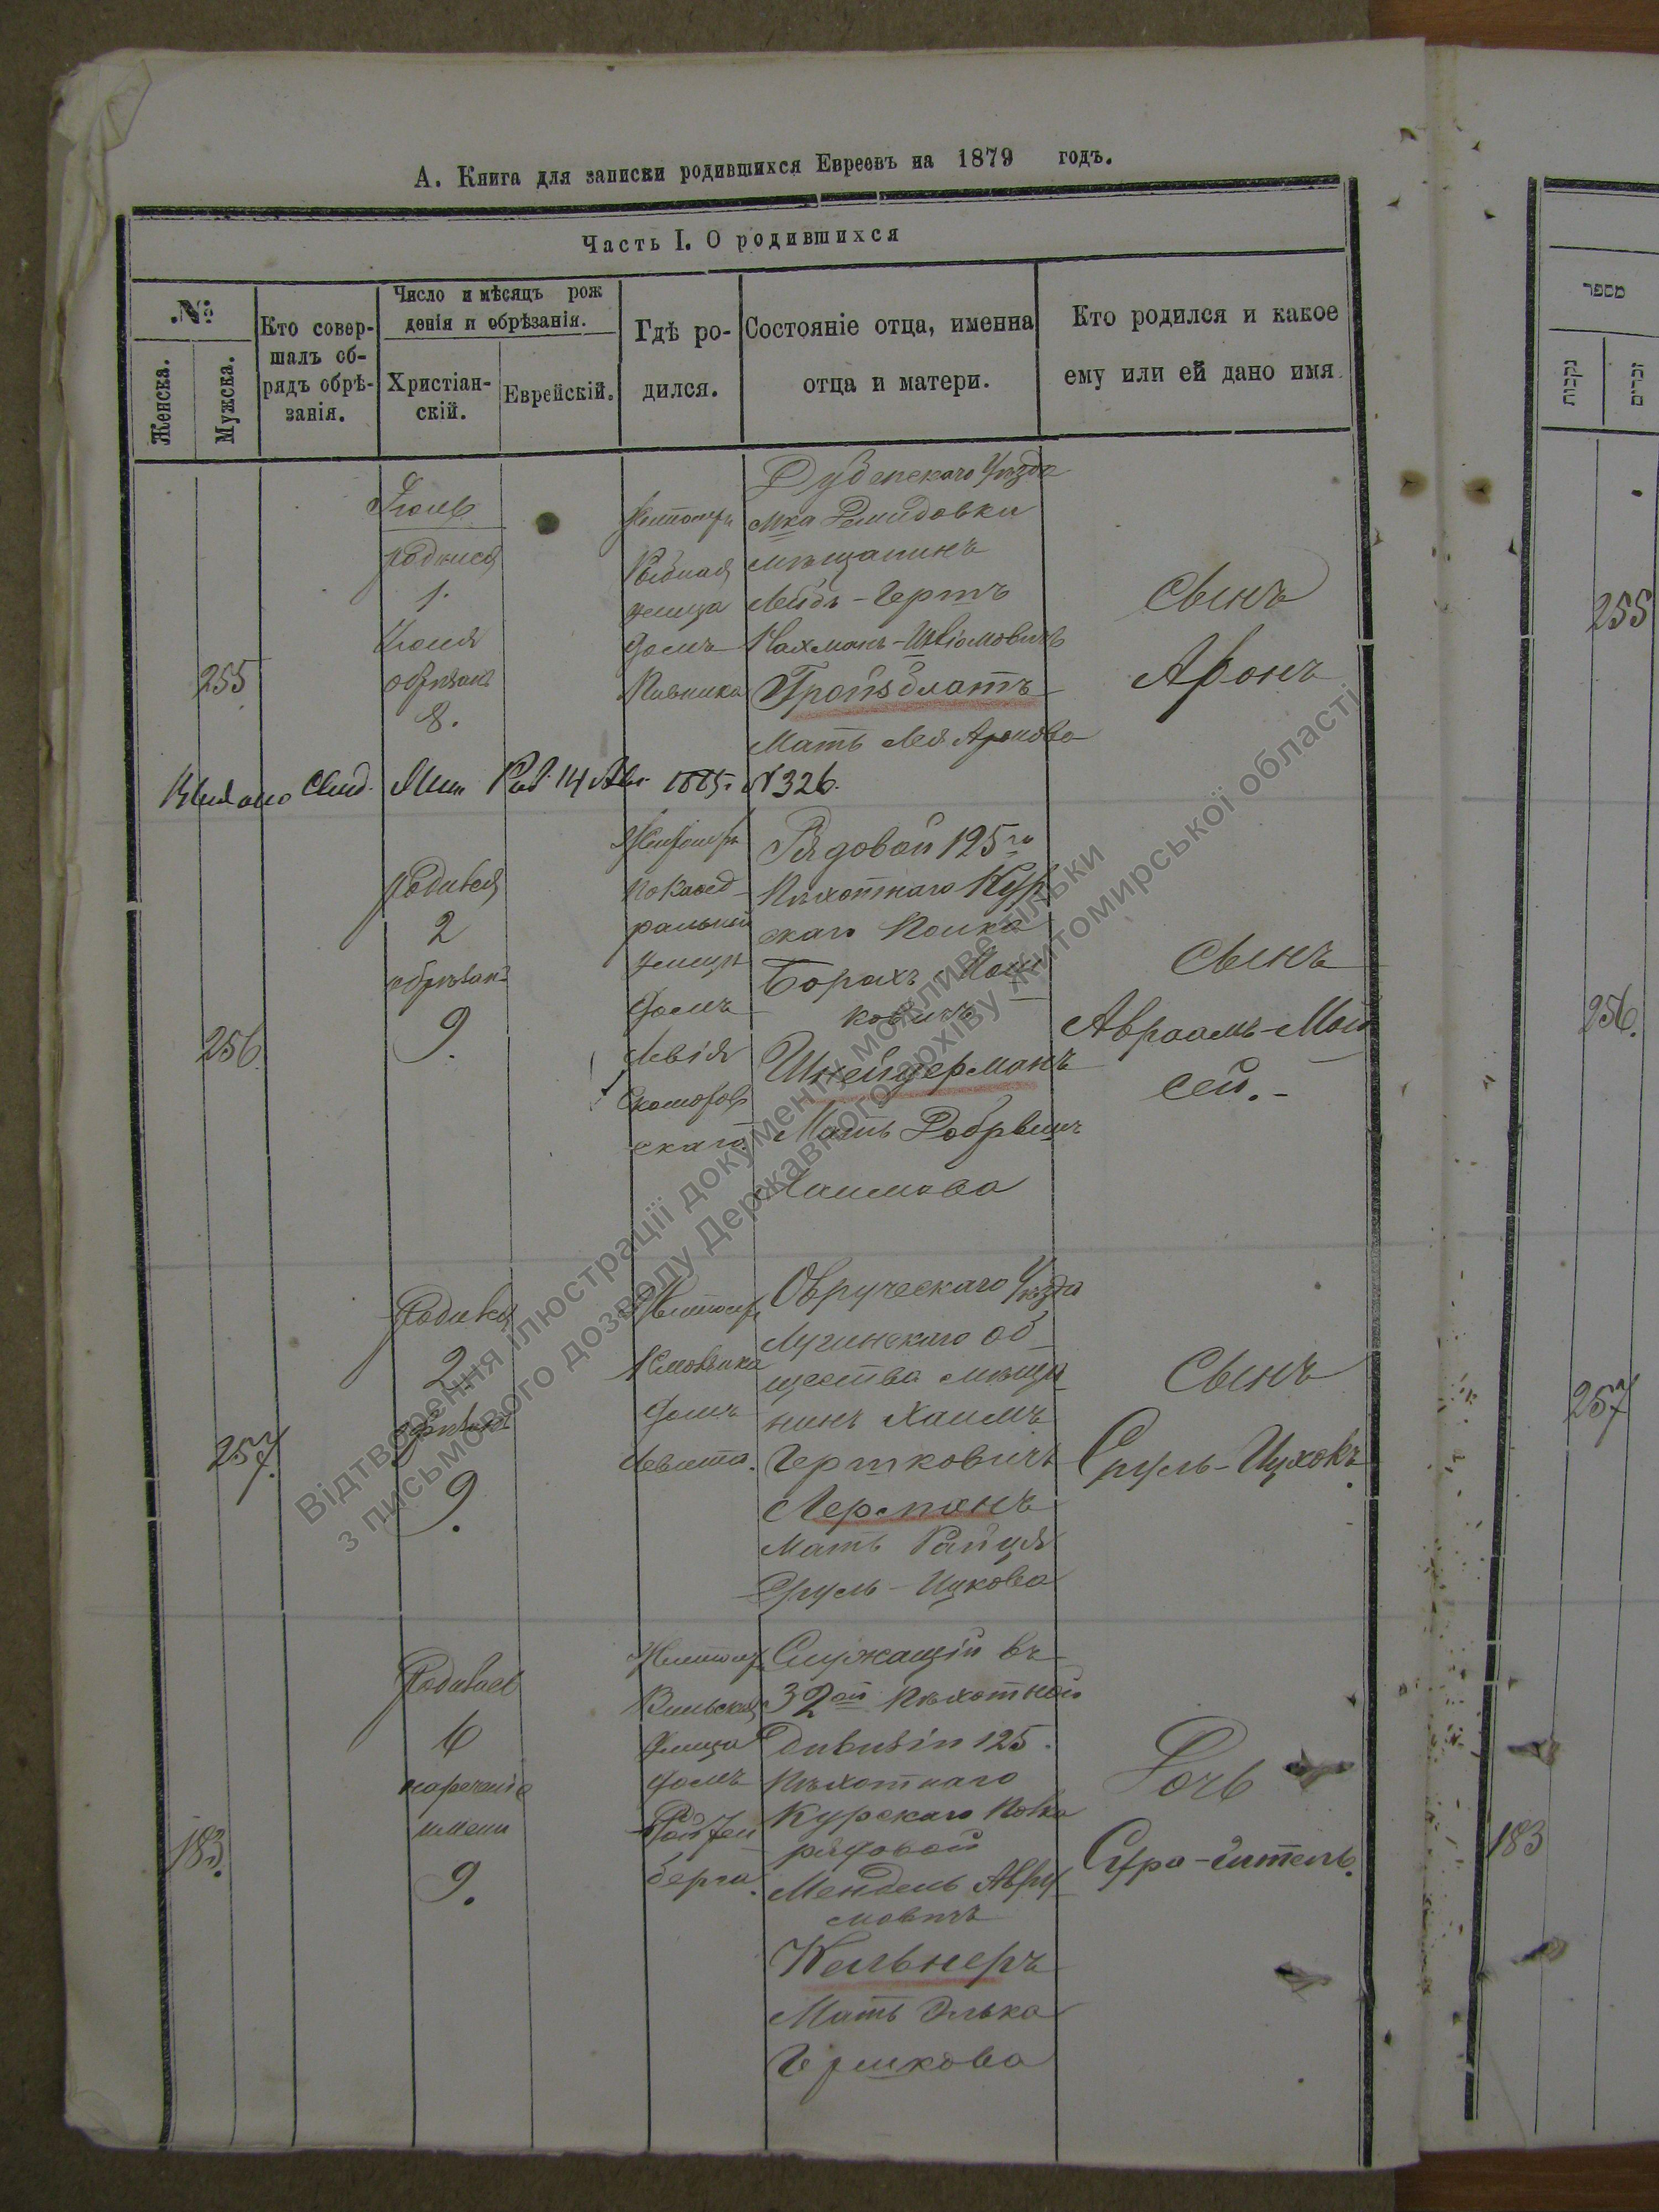 А. Книга для записки родившихся Евреевъ на 1879 годъ.
Часть I. О родившихся
№
Женска.
Мужска.
Кто совер-
шалъ об-
рядъ обрѣ-
занія.
Число и мѣсяцъ рож
денія и обрѣзанія.
Христіан-
скій.
Еврейскій.
Гдѣ ро-
дился.
Состояніе отца, именна
отца и матери.
Кто родился и какое
ему или ей дано имя.
255
1.
Іюля
обрѣзанъ
8.
Рыбная
улица
домъ
Дубенскаго Уѣзда
мка Демидовки
мѣщанинъ
Лейбъ-Гершъ
Мать Лея Аронова
Сынъ
Аронъ
№ 326.
256
родился
2
обрѣзанъ
9.
Житомиръ
по Каѳед
ральной
улицы
домъ
Левія
Скоморов
скаго
Рядовой 125го
Пѣхотнаго Кур
скаго Полка
Борахъ Мош
ковичъ
Шнейдерманъ
Мать Добрышъ
Хаимова
Сынъ
Авраамъ-Мой
сей.-
257.
Родился
2
обрѣзанъ
9.
домъ
Левита.
Овручскаго Уѣзда
Лугинскаго об
щества мѣща
нинъ Хаимъ
Гершковичъ
Лерманъ
мать Райця
Сруль-Ицкова
Сынъ
Сруль-Ицхокъ.
183.
Родилась
6
нареченіе
имени
9.
Вильская
улица
домъ
Ройзен
берга.
Служащій въ
32ой Пѣхотной
Дивизіи 125.
Пѣхотнаго
Курскаго Полка
рядовой
Мендель Авру
мовичъ
Кельнеръ
Мать Элька
Гершкова
Дочь
Сура-Гитель.
מספר
נקבות
זכרים
255
256.
257
183
Відтворення ілюстрації документу можливе тільки
з письмового дозволу Державного архіву Житомирської області